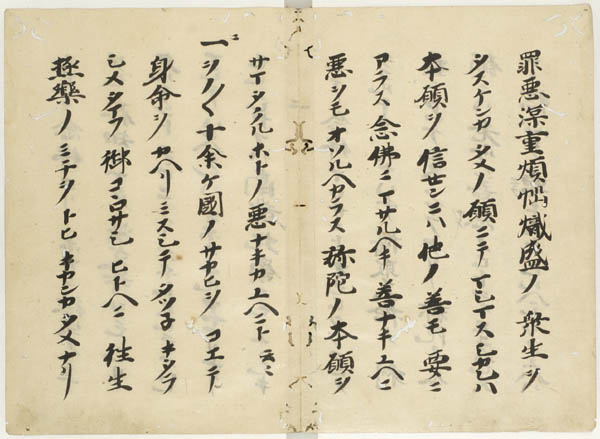 罪悪深重煩悩熾盛ノ衆生ヲ
タスケンカタメノ願ニテマシマス シカレハ
本願ヲ信センニハ他ノ善モ要ニ
アラス念佛ニマサルヘキ善ナキユヘニ
悪ヲモオソルヘカラス弥陀ノ本願ヲ
サマタクルホトノ悪ナキカユヘニト云々
一ヲノ〱十余ケ國ノサカヒヲコエテ
身命ヲカヘリミスシテタツネキタラ
シメタマフ御コヽロサシヒトヘニ往生
極樂ノミチヲトヒキカンカタメナリ